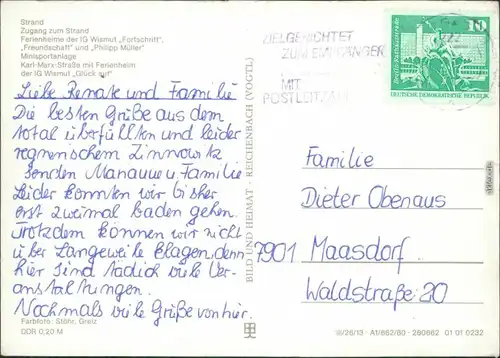 Strand
Zugang zum Strand
Ferienheime der IG Wismut „Fortschritt",
„Freundschaft" und „Philipp Müller"
Minisportanlage
Karl-Marx-Straße mit Ferienheim
der IG Wismut „Glück auf"
Liebe Renate und Familie
Die besten Grüße aus dem
total überfüllten und leider
regnerischem Zinnowitz
senden Familie
Leider konnten wir bisher
erst zweimal baden gehen.
Trotzdem können wir nicht
über Langeweile klagen, denn
hier sind täglich viele Ver-
anstaltungen.
Nochmals viele Grüße von hier.
Farbfoto: Stöhr, Greiz
DDR 0,20 M
BILD UND HEIMAT · REICHENBACH (VOGTL)
ZIELGERICHTET
ZUM EMPFÄNGER
MIT
POSTLEITZAHL
10
DEUTSCHE DEMOKRATISCHE REPUBLIK
Familie
Dieter Obenaus
7901 Maasdorf
Waldstraße 20
III/26/13 · A1/862/80 · 280662 01 01 0232